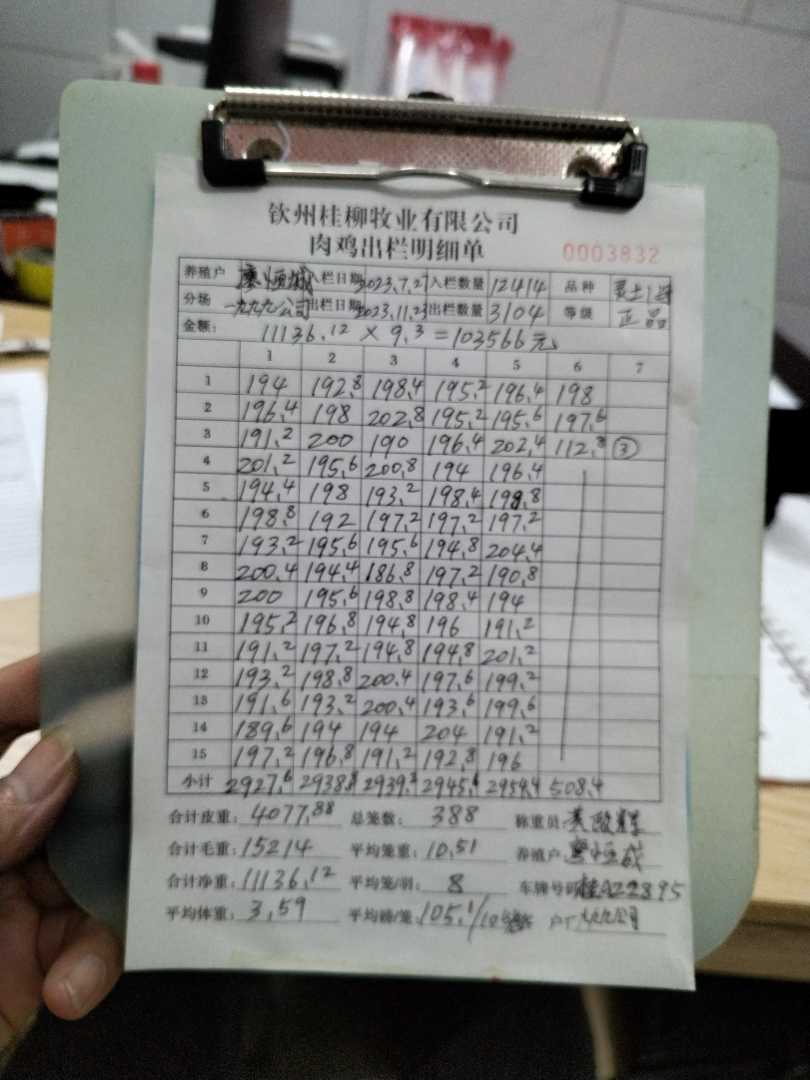 钦州桂柳牧业有限公司
肉鸡出栏明细单 0003832
养殖户 廖恒城 入栏日期 2023.7.27 入栏数量 12414 品种 灵土1号
分场 一九九九公司 出栏日期 2023.11.23 出栏数量 3104 等级 正品
金额: 11136.12 × 9.3 = 103566元
1 2 3 4 5 6 7
1 194 192.8 198.4 195.2 196.4 198
2 196.4 198 202.8 195.2 195.6 197.6
3 191.2 200 190 196.4 202.4 112.8 ③
4 201.2 195.6 200.8 194 196.4
5 194.4 198 193.2 198.4 199.8
6 198.8 192 197.2 197.2 197.2
7 193.2 195.6 195.6 194.8 204.4
8 200.4 194.4 186.8 197.2 190.8
9 200 195.6 198.8 198.4 194
10 195.2 196.8 194.8 196 191.2
11 191.2 197.2 194.8 194.8 201.2
12 193.2 198.8 200.4 197.6 199.2
13 191.6 193.2 200.4 193.6 199.6
14 189.6 194 194 204 191.2
15 197.2 196.8 191.2 192.8 196
小计 2927.6 2938.8 2939.2 2945.6 2954.4 508.4
合计皮重: 4077.88 总笼数: 388 称重员:
合计毛重: 15214 平均笼重: 10.51 养殖户 廖恒城
合计净重: 11136.12 平均笼/羽: 8 车牌号码 桂A22895
平均体重: 3.59 平均磅/笼: 105.1/10